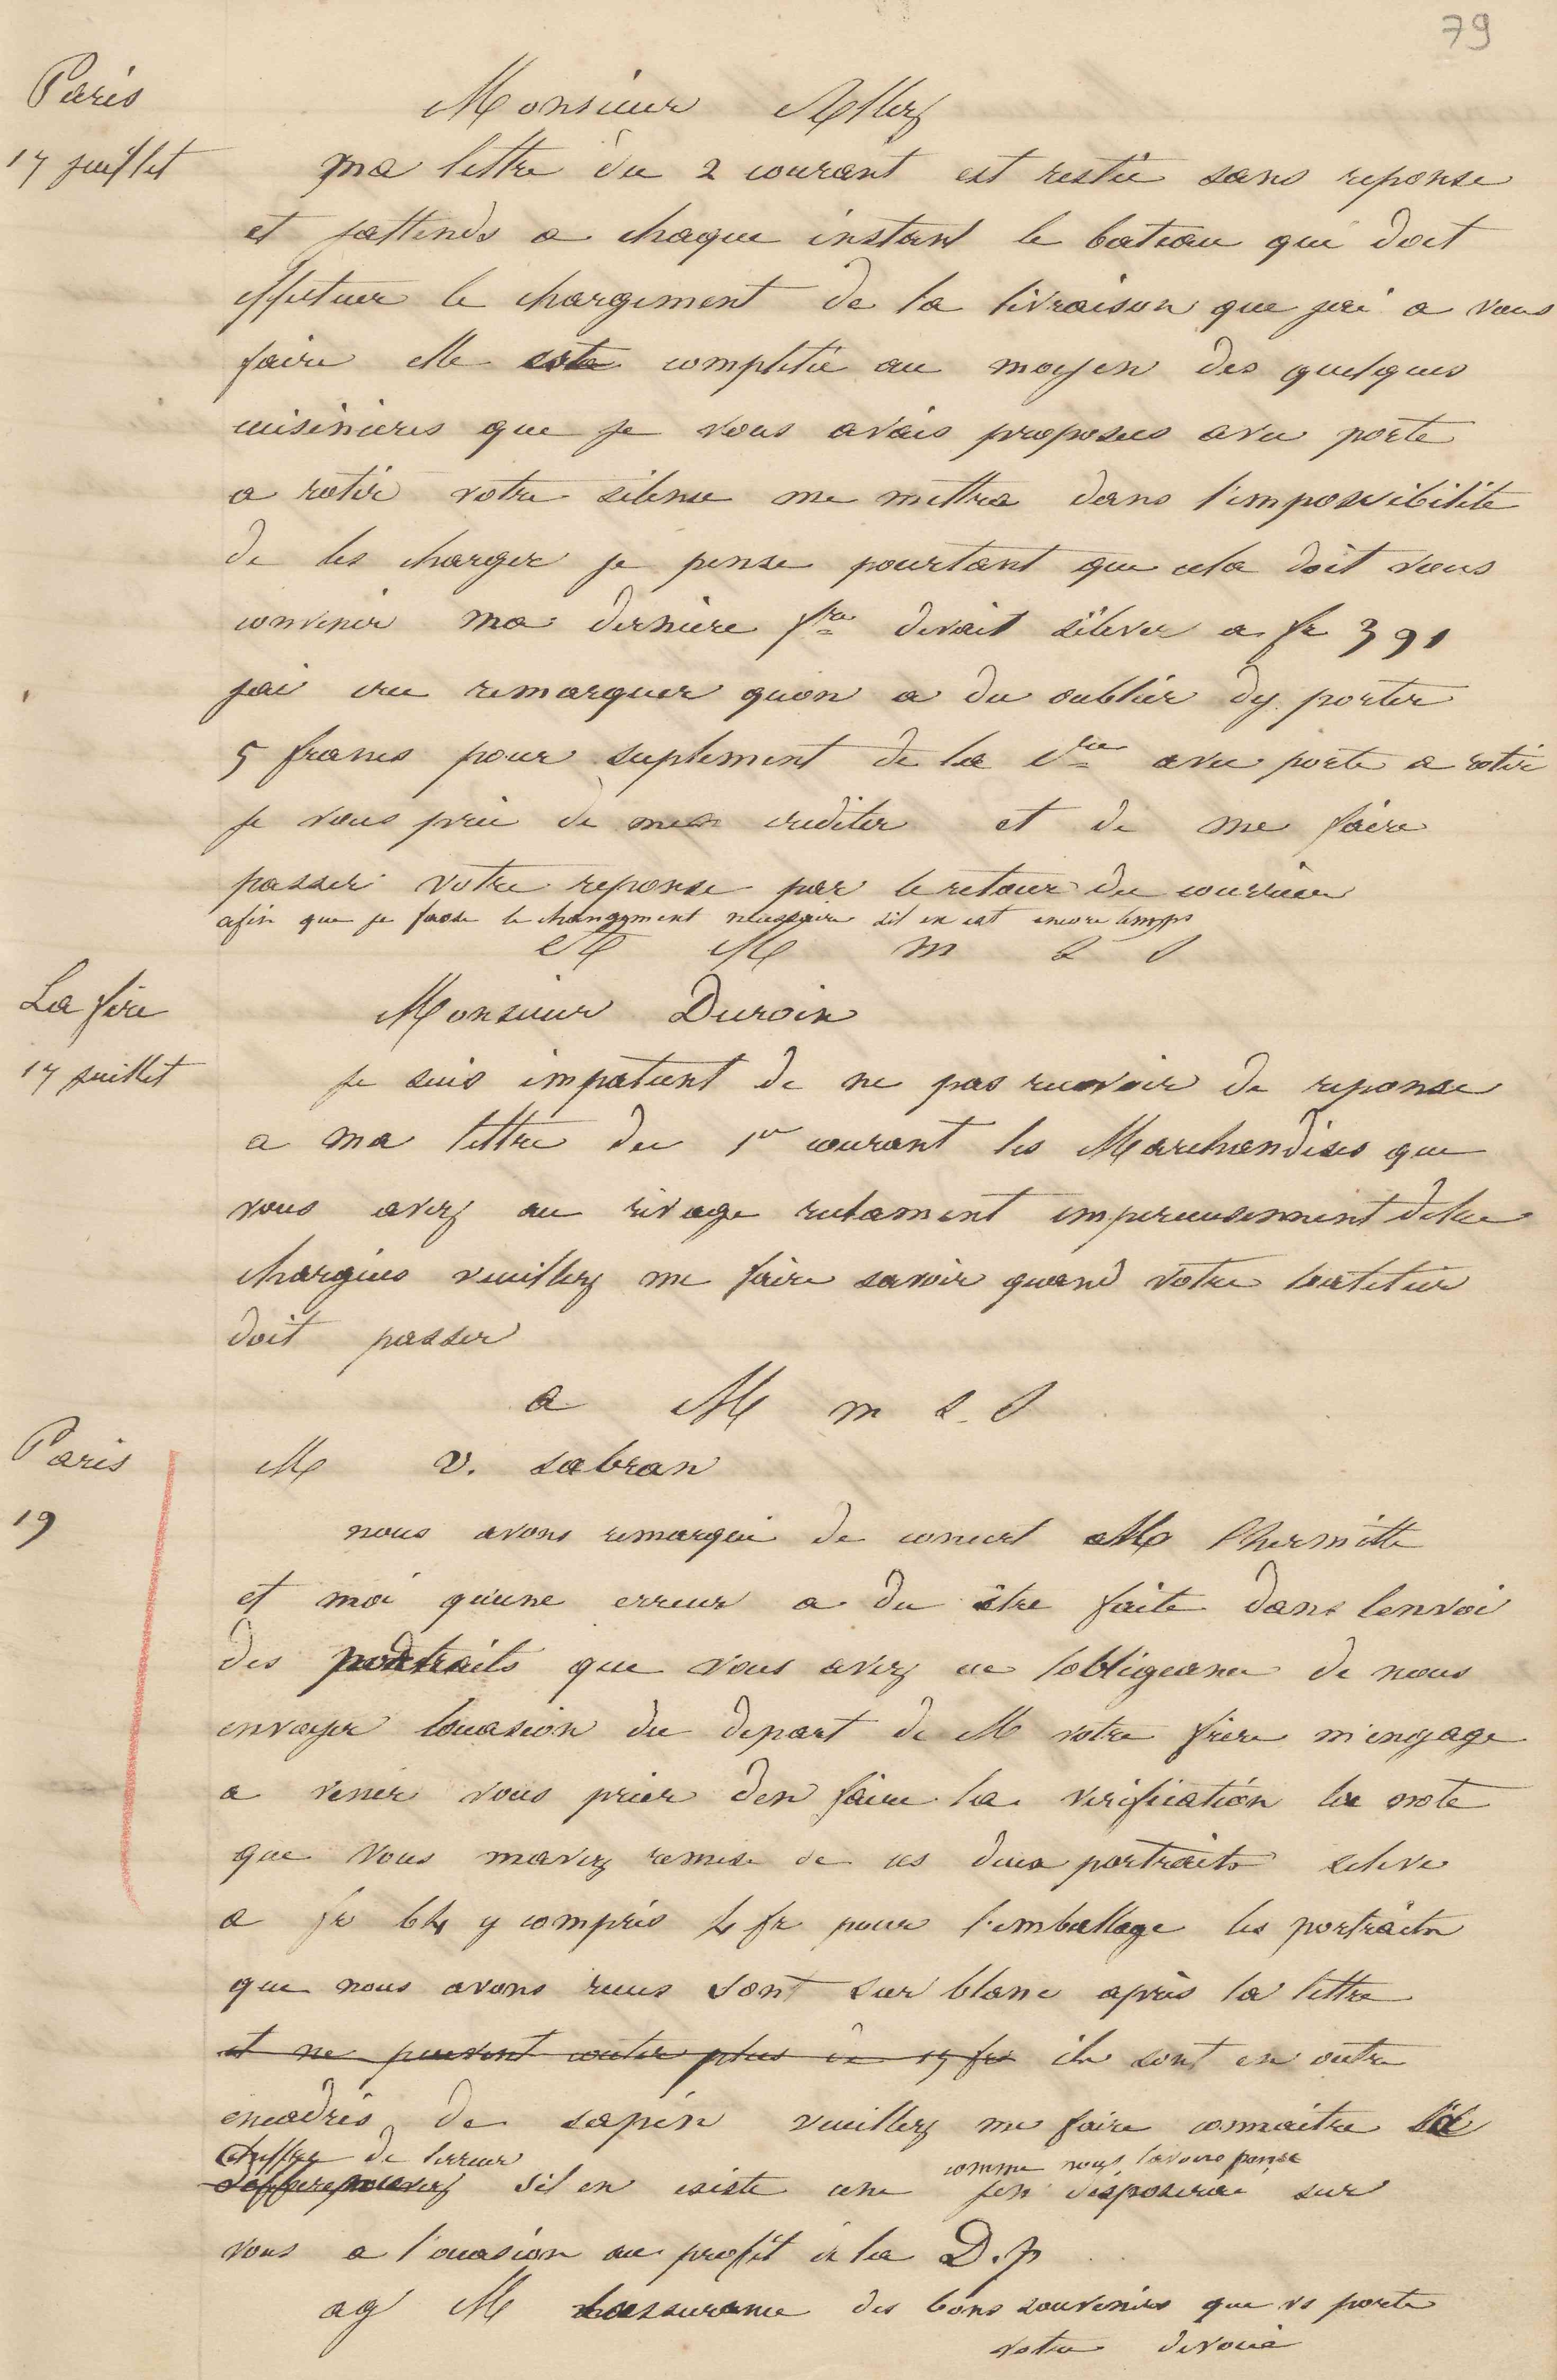 79
Paris
17 juillet
Monsieur Allez
ma lettre du 2 courant est restée sans reponse
et jattends a chaque instant le bateau qui doit
effectuer le chargement de la livraison que jai a vous
faire elle sera completée au moyen des quelques
cuisinieres que je vous avais proposees avec porte
a rotir votre silence me mettra dans l'impossibilité
de les charger je pense pourtant que cela doit vous
convenir ma derniere fre devait s'élever a fr 391
jai cru remarquer quon a du oublier dy porter
5 francs pour suplement de la cre avec porte a rotir
je vous prie de men crediter et de me faire
passer votre reponse par le retour du courrier
afin que je fasse le changement necessaire s'il en est encore temps
M m s
La fere
17 juillet
Monsieur Duroin
je suis impatient de ne pas recevoir de reponse
a ma lettre du 1er courant les Marchandises que
vous avez au rivage reclament imperieusement detre
chargées veuillez me faire savoir quand votre batelier
doit passer
a M m s. s
Paris
19
M v. sabran
nous avons remarqué de concert M lhermitte
et moi qu'une erreur a du être faite dans lenvoi
des portraits que vous avez eu lobligeance de nous
envoyer loccasion du depart de M votre frere m'engage
a venir vous prier den faire la verification la note
que vous mavez remise de ces deux portraits seleve
a fr 64 y compris 4 fr pour l'emballage les portraits
que nous avons recus sont sur blanc après la lettre
et ne peuvent couter plus de 15 frs ils sont en outre
encadrés de sapin veuillez me faire connaitre le
chiffre de lerreur
s'il en existe une comme nous lavons pensé jen disposerai sur
vous a l'occasion au profit de la D.p
ag M lassurance des bons souvenirs que vs porte
votre devoué